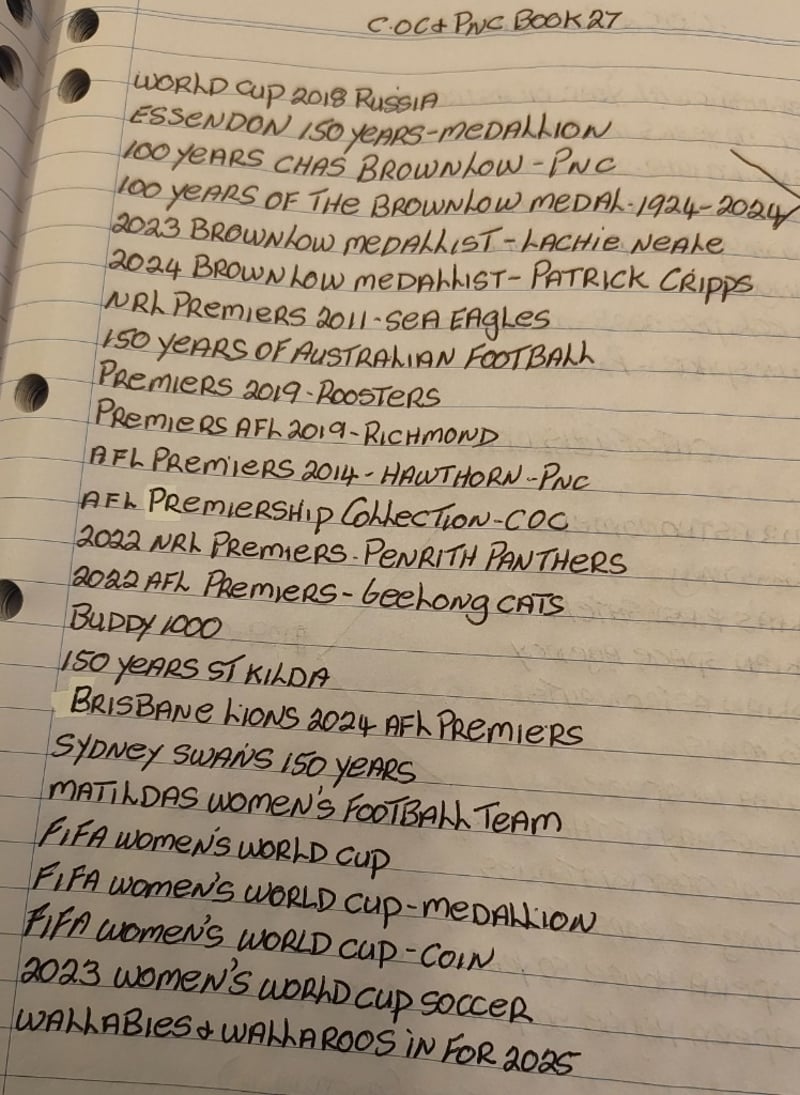 C.OC & PNC BOOK 27
WORLD CUP 2018 RUSSIA
ESSENDON 150 YEARS-MEDALLION
100 YEARS CHAS BROWNLOW - PNC
100 YEARS OF THE BROWNLOW MEDAL-1924-2024
2023 BROWNLOW MEDALLIST - LACHIE NEALE
2024 BROWNLOW MEDALLIST- PATRICK CRIPPS
NRL PREMIERS 2011-SEA EAGLES
150 YEARS OF AUSTRALIAN FOOTBALL
PREMIERS 2019-ROOSTERS
PREMIERS AFL 2019-RICHMOND
AFL PREMIERS 2014 - HAWTHORN-PNC
AFL PREMIERSHIP COLLECTION-COC
2022 NRL PREMIERS-PENRITH PANTHERS
2022 AFL PREMIERS - GEELONG CATS
BUDDY 1000
150 YEARS ST KILDA
BRISBANE LIONS 2024 AFL PREMIERS
SYDNEY SWANS 150 YEARS
MATILDAS WOMEN'S FOOTBALL TEAM
FIFA WOMEN'S WORLD CUP
FIFA WOMEN'S WORLD CUP-MEDALLION
FIFA WOMEN'S WORLD CUP-COIN
2023 WOMEN'S WORLD CUP SOCCER
WALLABIES & WALLAROOS IN FOR 2025